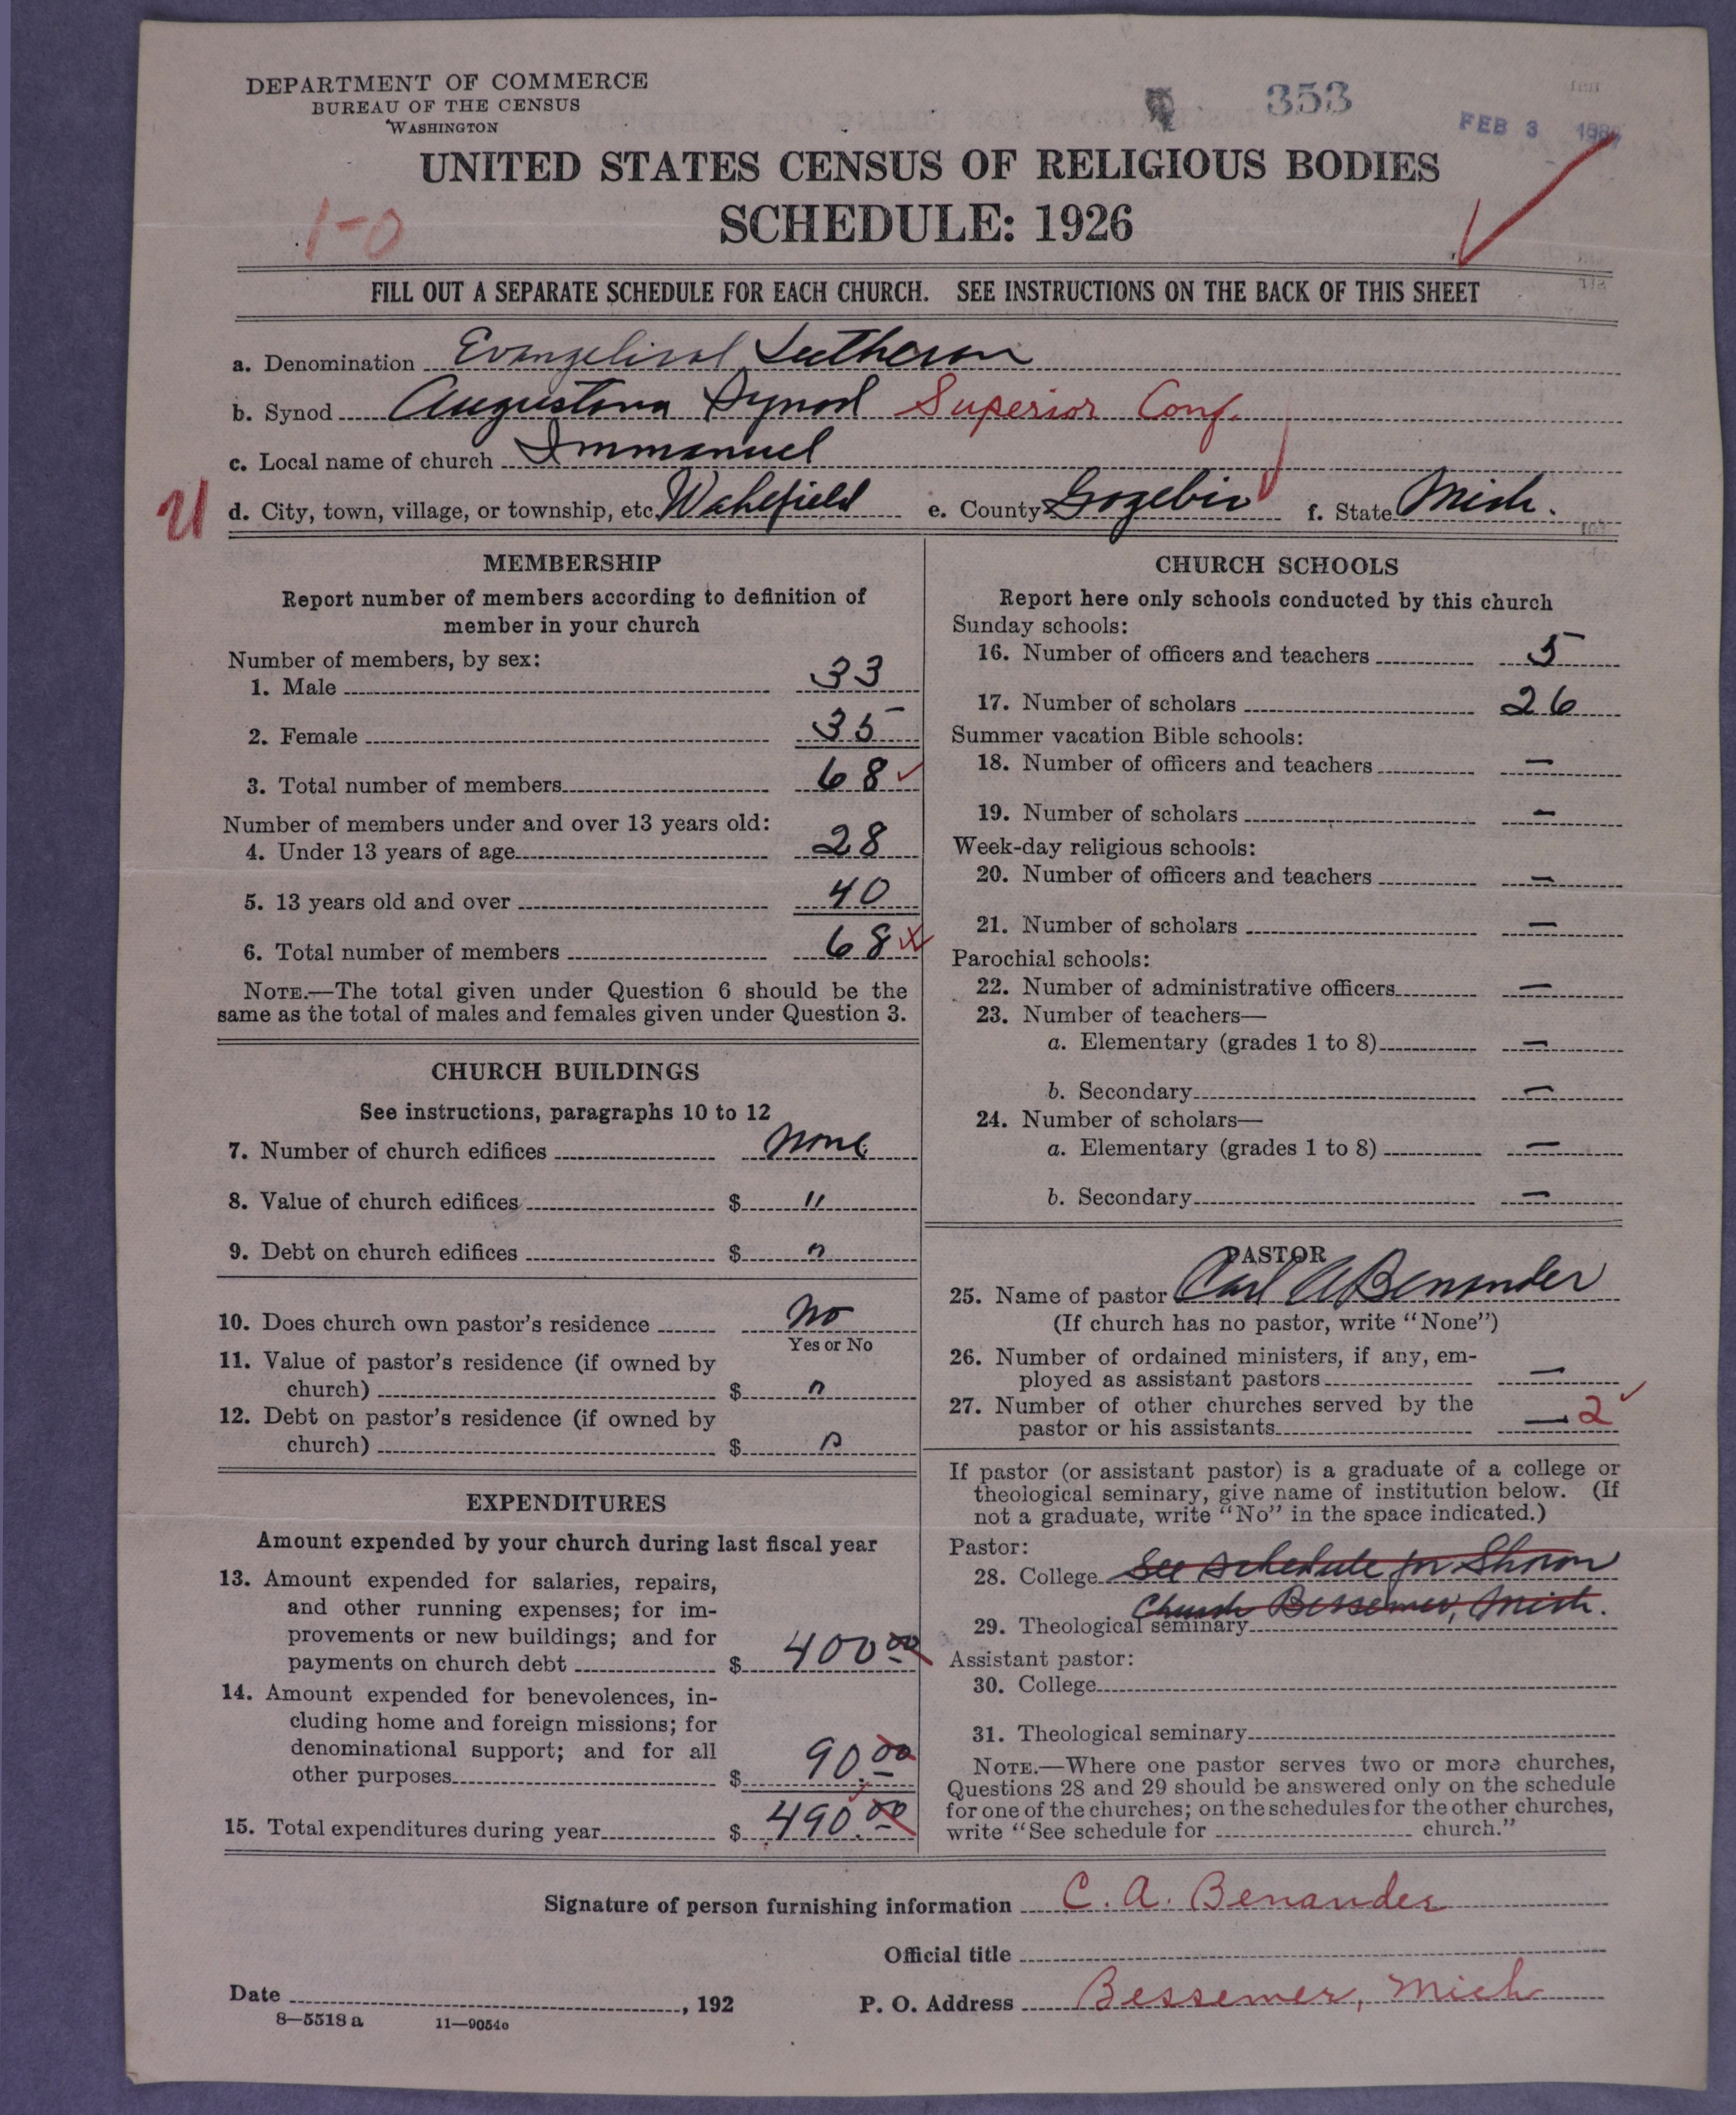 DEPARTMENT OF COMMERCE
BUREAU OF THE CENSUS
WASHINGTON
353
FEB 3
UNITED STATES CENSUS OF RELIGIOUS BODIES
SCHEDULE: 1926
1-0
FILL OUT A SEPARATE SCHEDULE FOR EACH CHURCH. SEE INSTRUCTIONS ON THE BACK OF THIS SHEET
a. Denomination Evangelical Lutheran
b. Synod Augustana Synod Superior Conf.
c. Local name of church Immanuel
U d. City, town, village, or township, etc. Wakefield e. County Gogebic f. State Mich.
MEMBERSHIP
Report number of members according to definition of
member in your church
Number of members, by sex:
1. Male 33
2. Female 35
3. Total number of members 68
Number of members under and over 13 years old:
4. Under 13 years of age 28
5. 13 years old and over 40
6. Total number of members 68
NOTE.—The total given under Question 6 should be the
same as the total of males and females given under Question 3.
CHURCH BUILDINGS
See instructions, paragraphs 10 to 12
7. Number of church edifices none
8. Value of church edifices $ "
9. Debt on church edifices $ "
10. Does church own pastor's residence no
Yes or No
11. Value of pastor's residence (if owned by
church) $ "
12. Debt on pastor's residence (if owned by
church) $ "
EXPENDITURES
Amount expended by your church during last fiscal year
13. Amount expended for salaries, repairs,
and other running expenses; for im-
provements or new buildings; and for
payments on church debt $ 400 00
14. Amount expended for benevolences, in-
cluding home and foreign missions; for
denominational support; and for all
other purposes $ 90.00
15. Total expenditures during year $ 490.00
CHURCH SCHOOLS
Report here only schools conducted by this church
Sunday schools:
16. Number of officers and teachers 5
17. Number of scholars 26
Summer vacation Bible schools:
18. Number of officers and teachers —
19. Number of scholars —
Week-day religious schools:
20. Number of officers and teachers —
21. Number of scholars —
Parochial schools:
22. Number of administrative officers —
23. Number of teachers—
a. Elementary (grades 1 to 8) —
b. Secondary —
24. Number of scholars—
a. Elementary (grades 1 to 8) —
b. Secondary —
PASTOR
25. Name of pastor Carl A Benander
(If church has no pastor, write "None")
26. Number of ordained ministers, if any, em-
ployed as assistant pastors —
27. Number of other churches served by the
pastor or his assistants — 2
If pastor (or assistant pastor) is a graduate of a college or
theological seminary, give name of institution below. (If
not a graduate, write "No" in the space indicated.)
Pastor:
28. College See Schedule for Sharon
29. Theological seminary Church Bessemer, Mich.
Assistant pastor:
30. College
31. Theological seminary
NOTE.—Where one pastor serves two or more churches,
Questions 28 and 29 should be answered only on the schedule
for one of the churches; on the schedules for the other churches,
write "See schedule for church."
Signature of person furnishing information C. A. Benander
Official title
Date , 192
P. O. Address Bessemer, Mich
8—5518 a 11—9054c